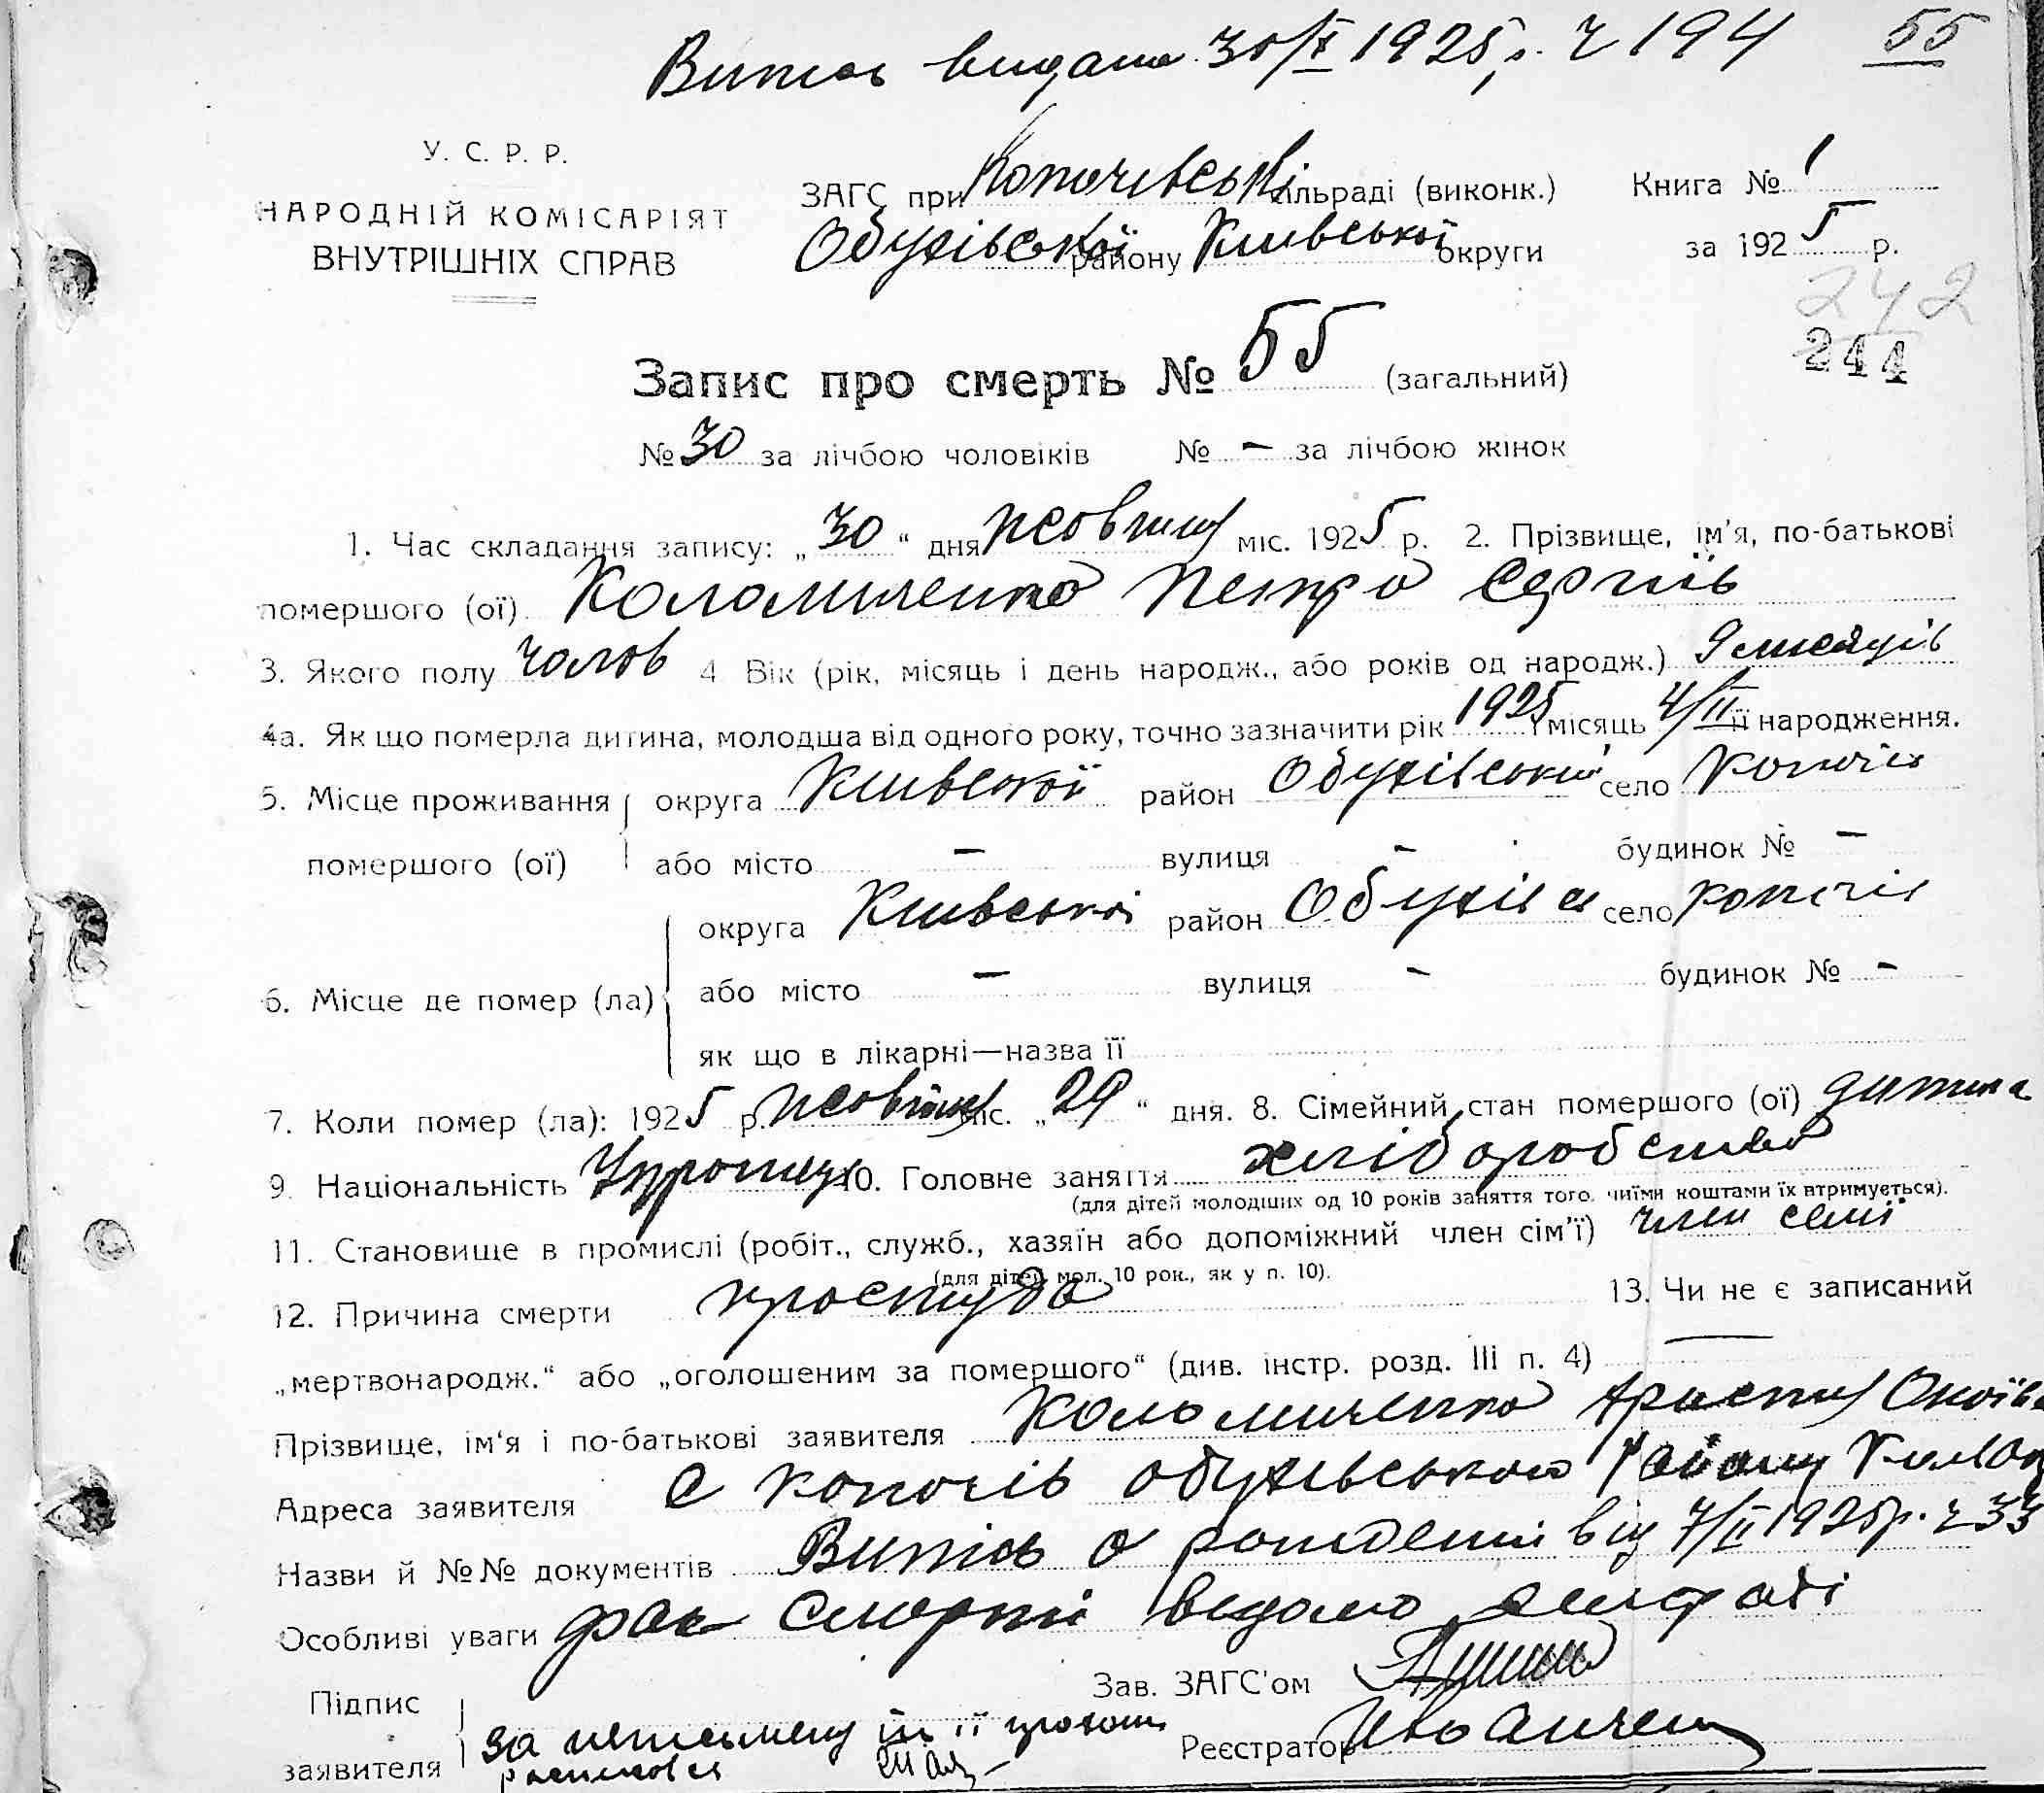 Витяг видано 30/X 1925 р. Ч 194 55
У. С. Р. Р.
НАРОДНІЙ КОМІСАРІЯТ
ВНУТРІШНІХ СПРАВ
ЗАГС при Копачевській сільраді (виконк.) Книга № 1
Обухівської району Київської округи за 1925 р.
242
244
Запис про смерть № 55 (загальний)
№ 30 за лічбою чоловіків № – за лічбою жінок
1. Час складання запису: „30“ дня жовтня міс. 1925 р. 2. Прізвище, ім'я, по-батькові
помершого (ої) Коломиченко Петро Сергіїв
3. Якого полу чолов 4 Вік (рік, місяць і день народж., або років од народж.) 9 місяців
4а. Як що померла дитина, молодша від одного року, точно зазначити рік 1925 місяць 4/II її народження.
5. Місце проживання округа Київської район Обухівський село Копачів
помершого (ої) або місто – вулиця – будинок № –
округа Київської район Обухівс село Копачів
6. Місце де помер (ла) або місто – вулиця – будинок № –
як що в лікарні—назва її
7. Коли помер (ла): 1925 р. жовтня міс. „29“ дня. 8. Сімейний стан помершого (ої) дитина
9. Національність Українец 10. Головне заняття хліборобство
(для дітей молодших од 10 років заняття того, чиїми коштами їх втримується).
11. Становище в промислі (робіт., служб., хазяїн або допоміжний член сім'ї) член семї
(для дітей мол. 10 рок., як у п. 10).
12. Причина смерти простуда 13. Чи не є записаний
„мертвонародж.“ або „оголошеним за помершого“ (див. інстр. розд. III п. 4) —
Прізвище, ім'я і по-батькові заявителя Коломиченко
Адреса заявителя С Копачів Обухівського району
Назви й №№ документів Витяг о рождении від 7/II 1925 р. ч 33
Особливі уваги факт смерти видомо сельраді
Підпис Зав. ЗАГС'ом
заявителя За неписьмену її прозьби Реєстратор Іванчен
росписався